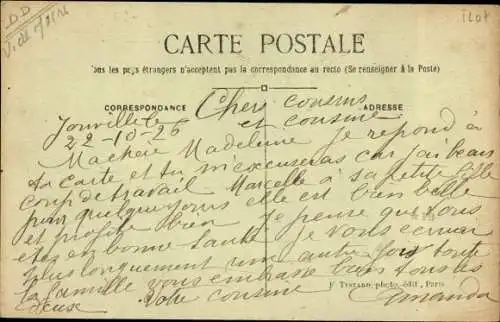 CARTE POSTALE
Tous les pays étrangers n'acceptent pas la correspondance au recto (Se renseigner à la Poste)
CORRESPONDANCE
ADRESSE
Chers cousins
et cousine
22-10-26
Ma chère Madeleine je répond à
ta carte et tu m'excuseras car j'ai beau
coup de travail Marcelle a sa petite fille
pour quelque jours elle est bien belle
et profite bien je pense que vous
etes en bonne santé je vous écrirai
plus longuement une autre fois toute
la famille vous embrasse bien tous les
deux Votre cousine Amanda
photo. édit., Paris